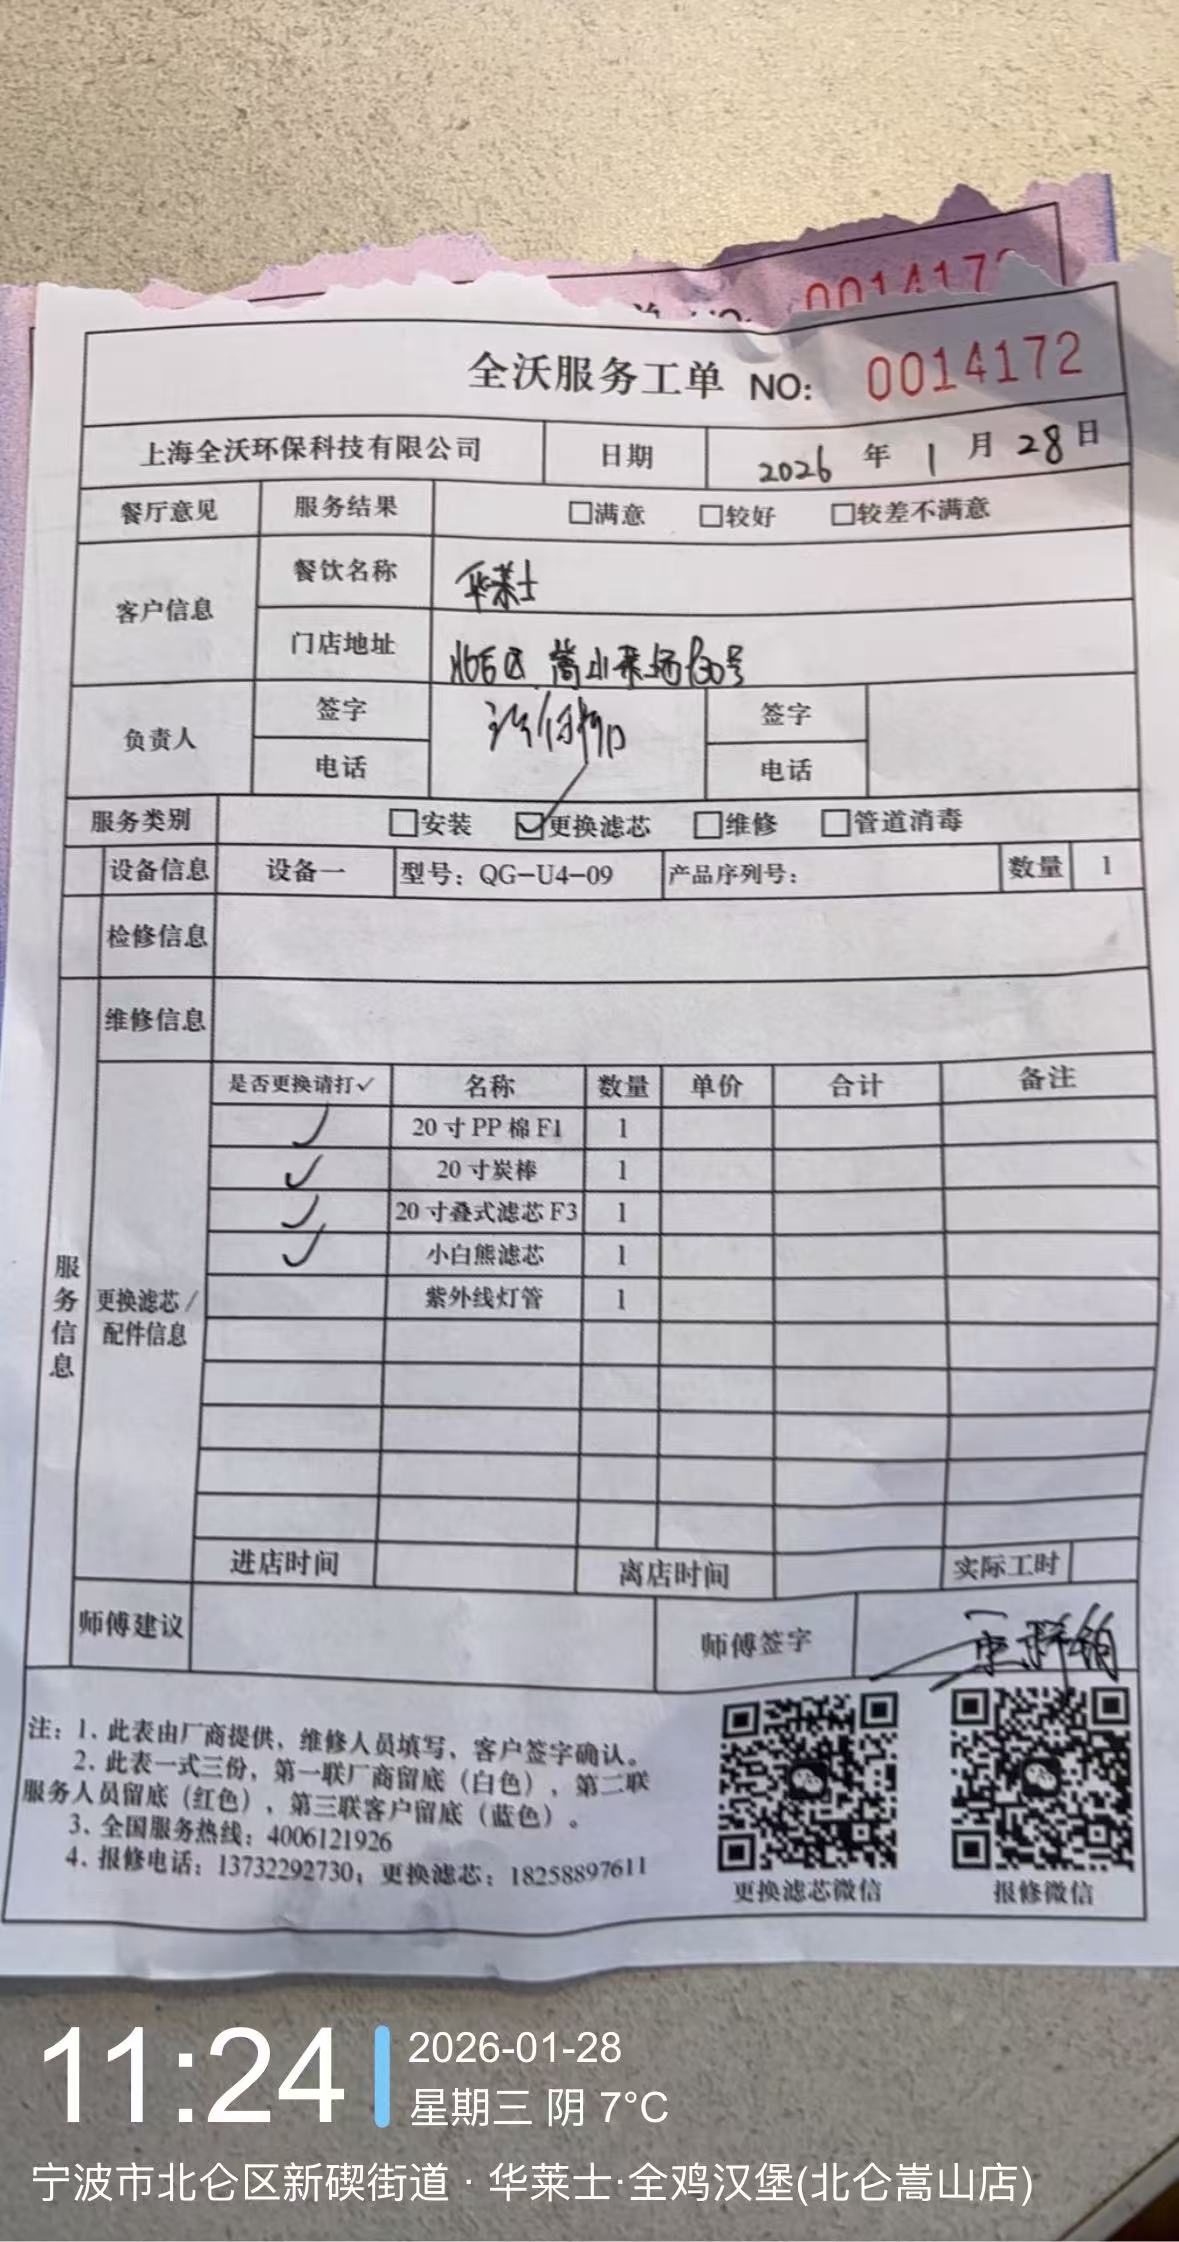 001417
全沃服务工单 NO: 0014172
上海全沃环保科技有限公司 日期 2026 年 1 月 28 日
餐厅意见 服务结果 □满意 □较好 □较差不满意
客户信息 餐饮名称 华莱士
门店地址 北仑区 嵩山菜场130号
负责人 签字 签字
电话 电话
服务类别 □安装 ☑更换滤芯 □维修 □管道消毒
设备信息 设备一 型号：QG-U4-09 产品序列号： 数量 1
检修信息
维修信息
服务信息
更换滤芯/配件信息
是否更换请打✓ 名称 数量 单价 合计 备注
✓ 20寸PP棉F1 1
✓ 20寸炭棒 1
✓ 20寸叠式滤芯F3 1
✓ 小白熊滤芯 1
紫外线灯管 1
进店时间 离店时间 实际工时
师傅建议 师傅签字
注：1. 此表由厂商提供，维修人员填写，客户签字确认。
2. 此表一式三份，第一联厂商留底（白色），第二联
服务人员留底（红色），第三联客户留底（蓝色）。
3. 全国服务热线：4006121926
4. 报修电话：13732292730；更换滤芯：18258897611
更换滤芯微信 报修微信
11:24
2026-01-28
星期三 阴 7°C
宁波市北仑区新碶街道 · 华莱士·全鸡汉堡(北仑嵩山店)